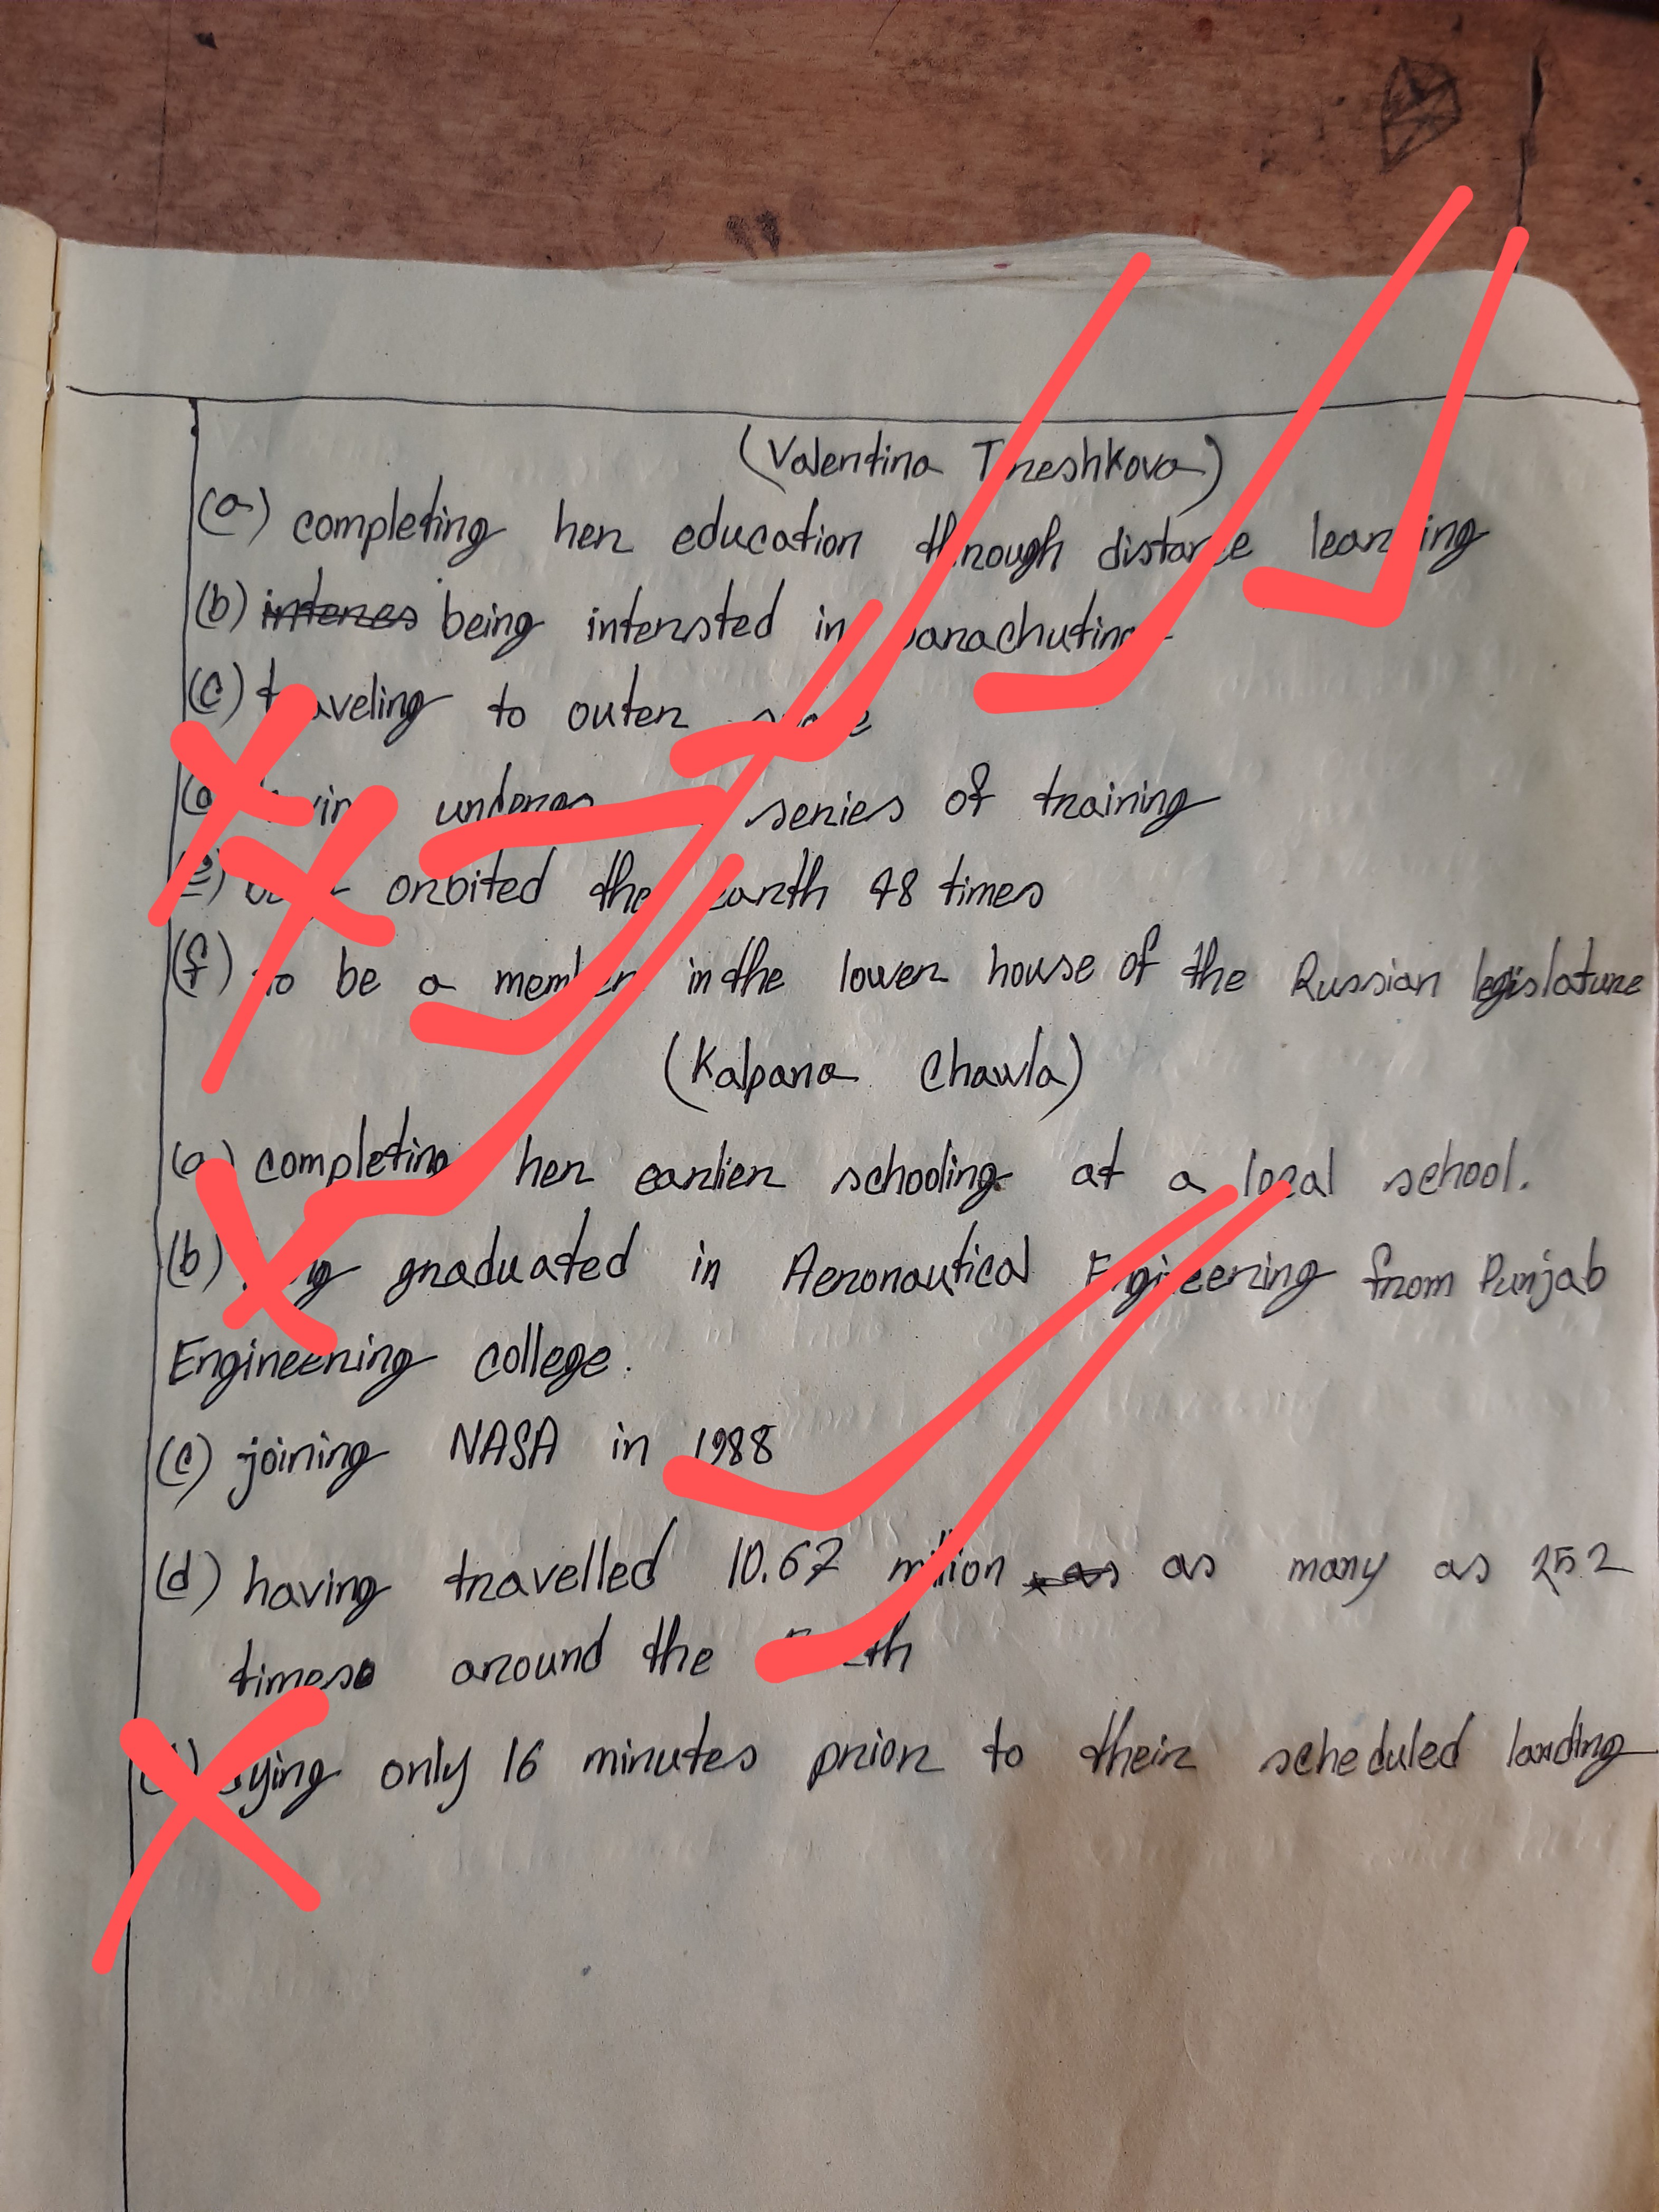 (Valentina Tereshkova)
(a) completing her education through distance learning
(b) being intersted in parachuting
(c) traveling to outer space
series of training
(e) orbited the earth 48 times
(f) to be a member in the lower house of the Russian legislature
(Kalpana Chawla)
(a) completing her earlier schooling at a local school.
(b) graduated in Aeronautical Engineering from Punjab
Engineering college.
(c) joining NASA in 1988
(d) having travelled 10.67 million as many as 252
times around the Earth
dying only 16 minutes prior to their scheduled landing